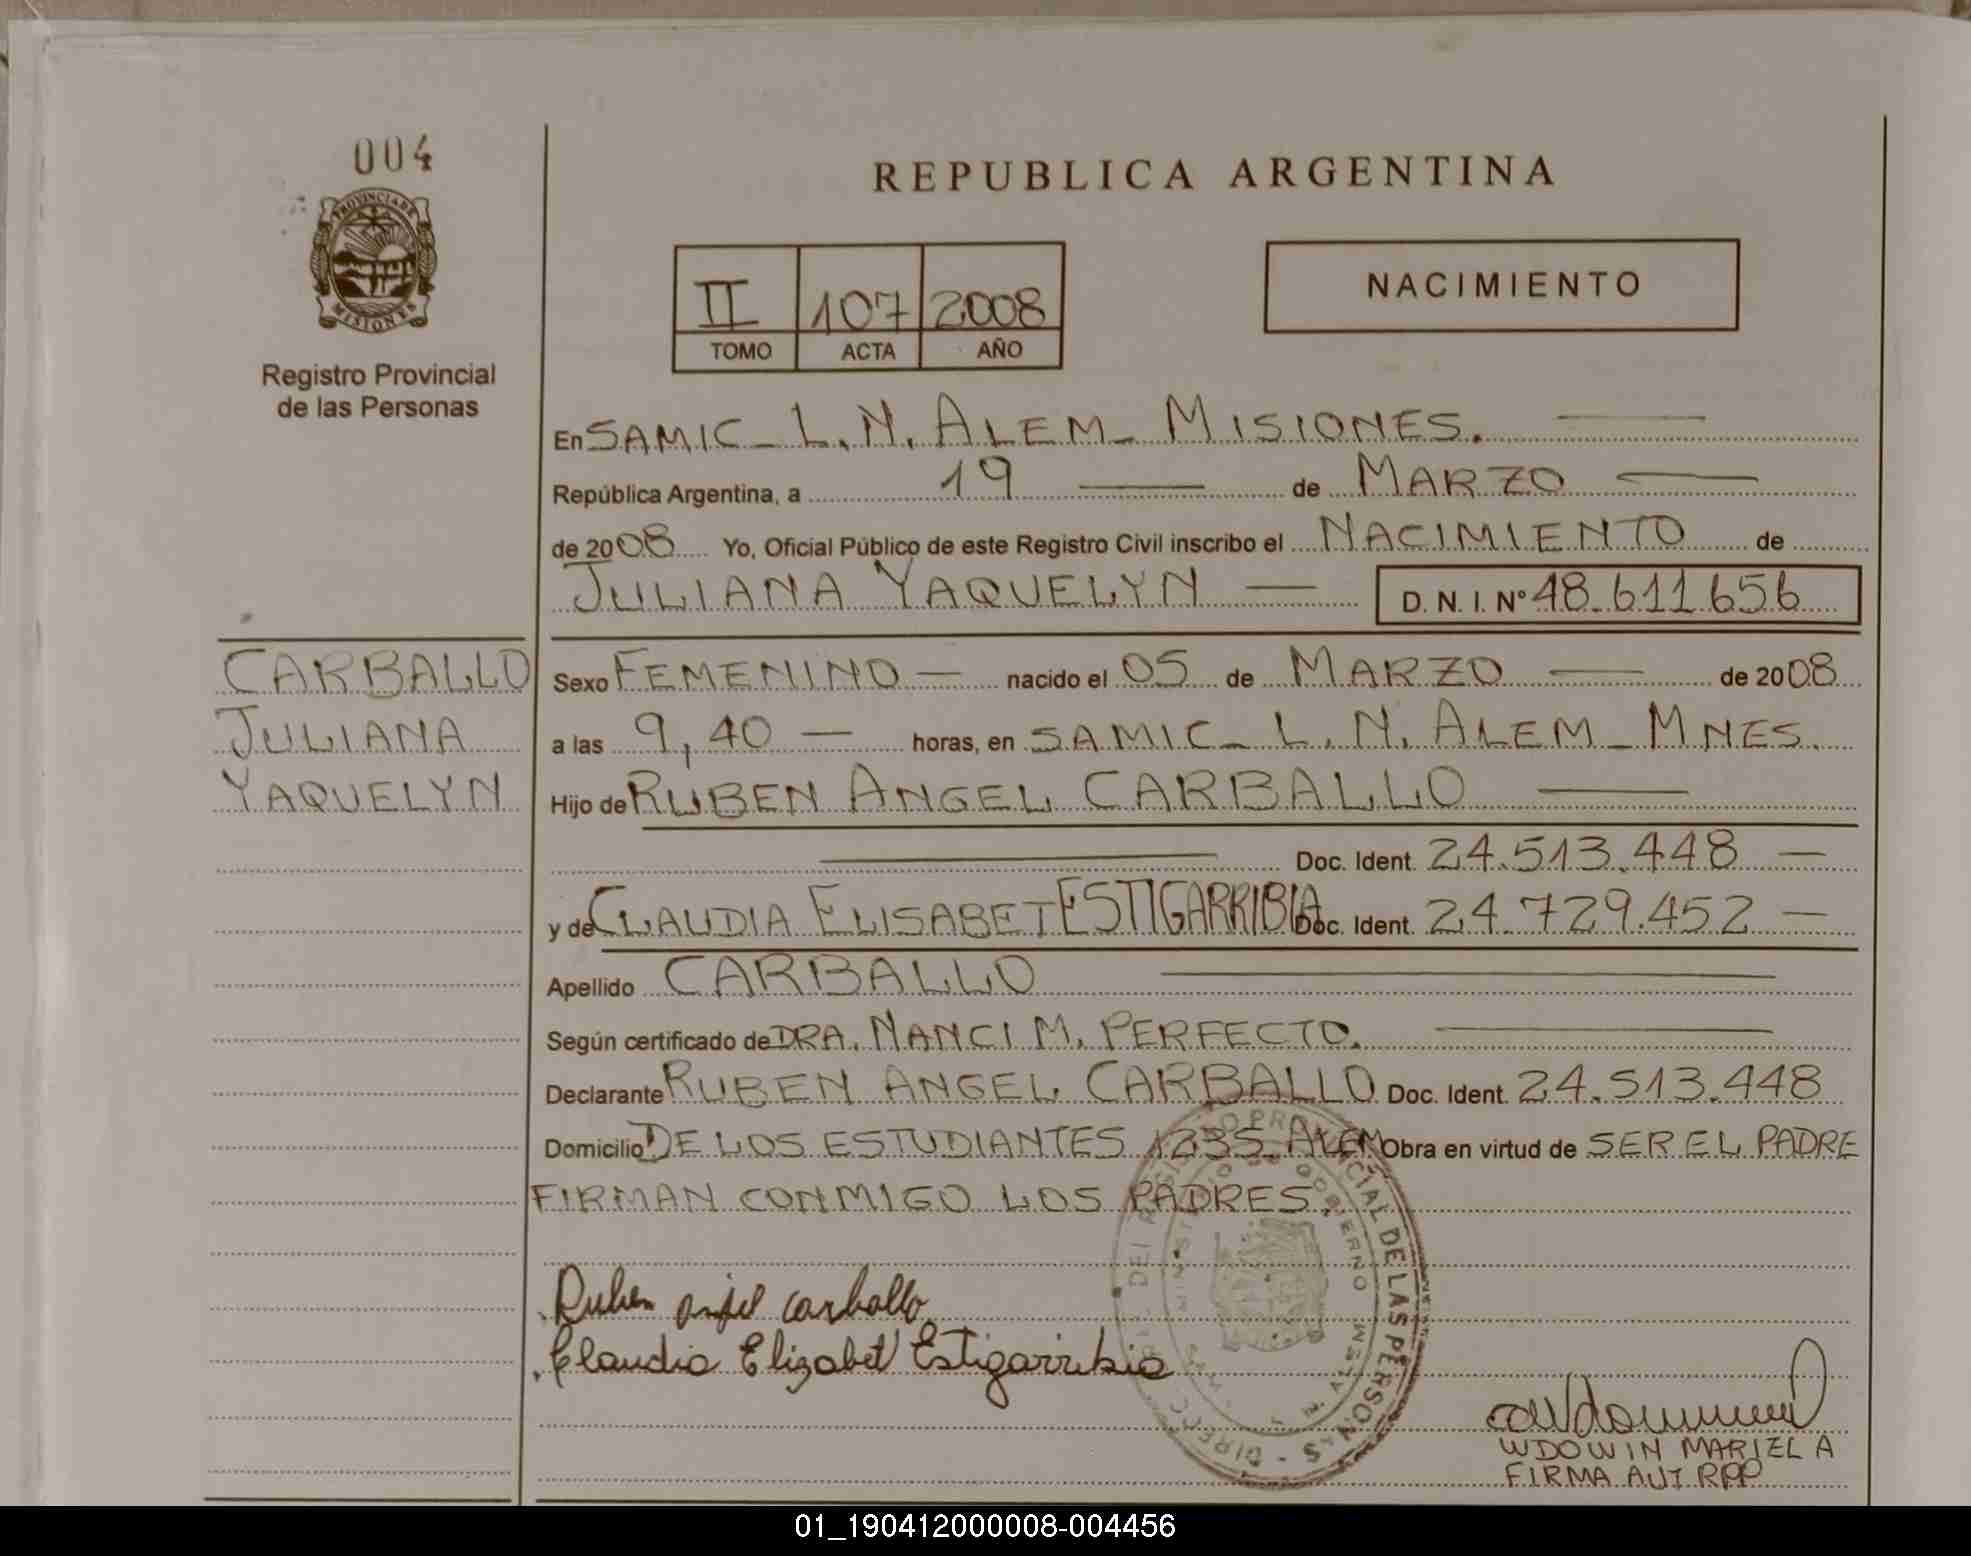 004
PROVINCIA DE
MISIONES
Registro Provincial
de las Personas
REPUBLICA ARGENTINA
II 107 2008
TOMO ACTA AÑO
NACIMIENTO
En SAMIC - L. N. ALEM - MISIONES.
República Argentina, a 19 de MARZO
de 2008 Yo, Oficial Público de este Registro Civil inscribo el NACIMIENTO de
JULIANA YAQUELYN D. N. I. Nº 48.611.656
CARBALLO
JULIANA
YAQUELYN
Sexo FEMENINO nacido el 05 de MARZO de 2008
a las 9,40 horas, en SAMIC - L. N. ALEM - MNES.
Hijo de RUBEN ANGEL CARBALLO
Doc. Ident. 24.513.448
y de CLAUDIA ELISABET ESTIGARRIBIA Doc. Ident. 24.729.452
Apellido CARBALLO
Según certificado de DRA. NANCI M. PERFECTO.
Declarante RUBEN ANGEL CARBALLO Doc. Ident. 24.513.448
Domicilio DE LOS ESTUDIANTES 1235 ALEM Obra en virtud de SER EL PADRE
FIRMAN CONMIGO LOS PADRES.
Ruben angel carballo
Claudia Elizabet Estigarribia
PROVINCIAL DE LAS PERSONAS
WDOWIN MARIEL A
FIRMA AUT RPP
01_190412000008-004456